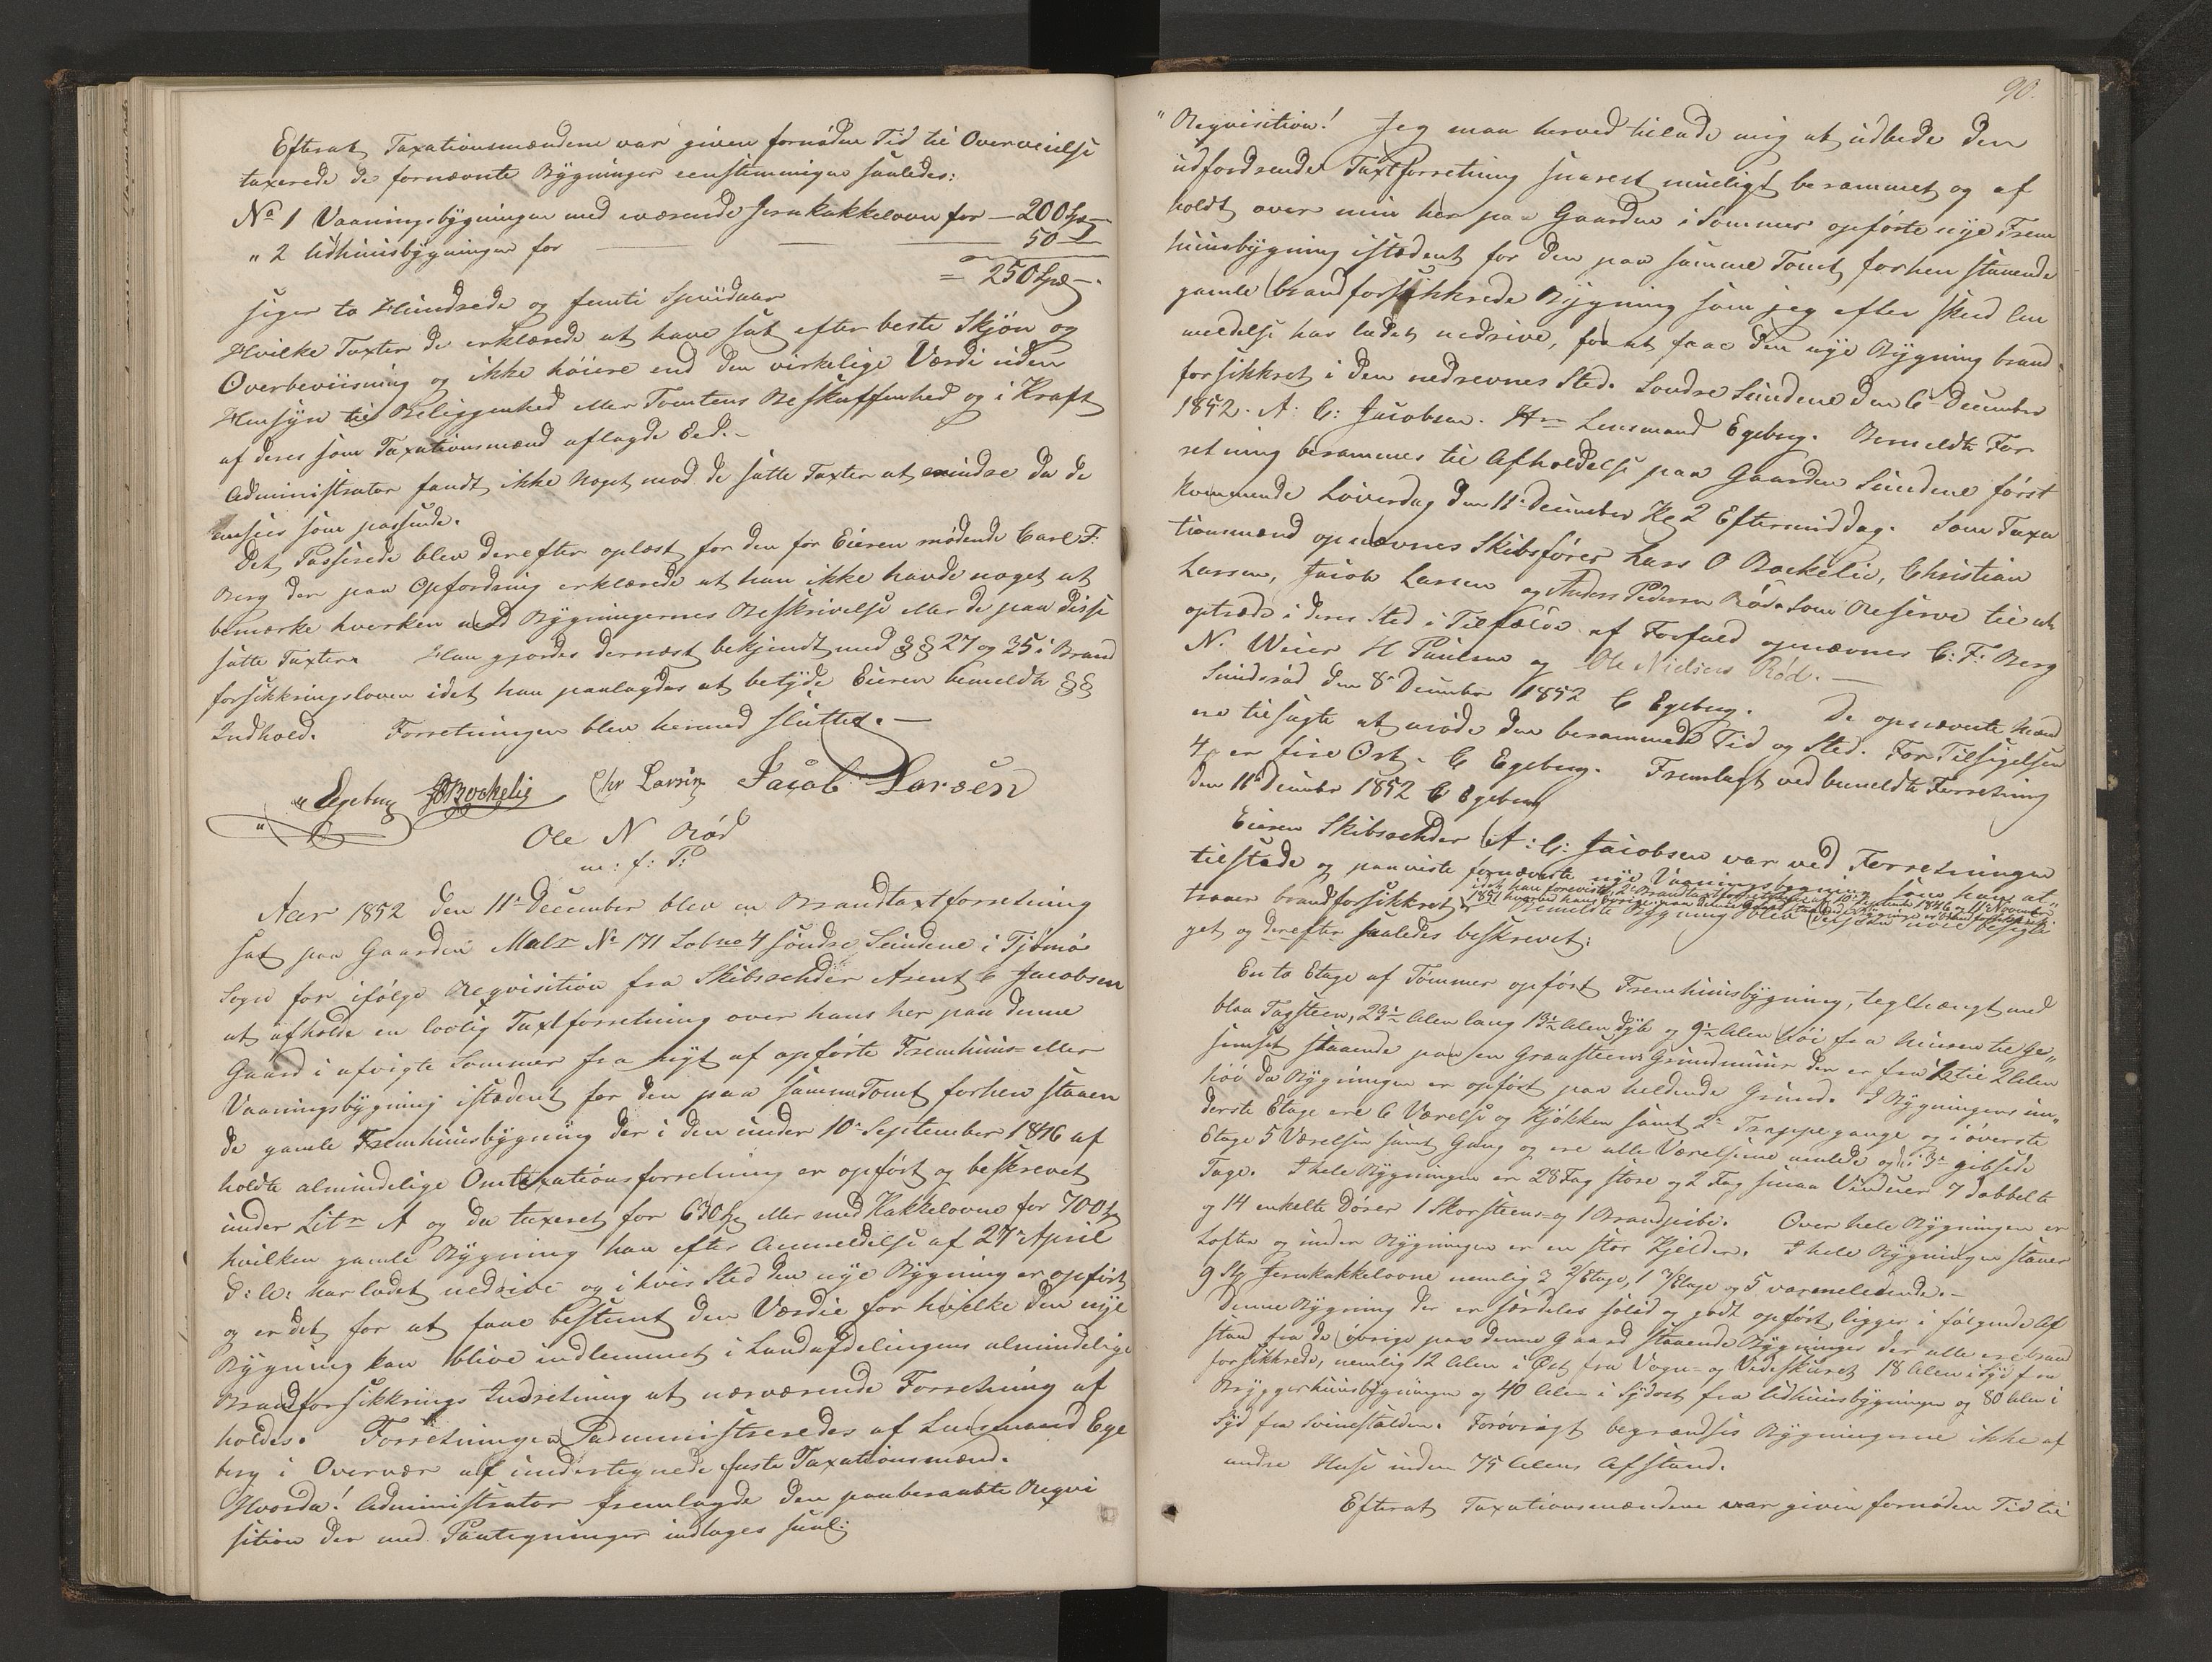 Efterat Taxationsmændene var given fornøden Tid til Overveielse
taxerede de fornævnte Bygninger eenstemmigen saaledes:
No 1 Vaaningsbygningen med værende Jernkakkelovn for — 200 Spd —
" 2 Udhuusbygningen for — 50 —
= 250 Spd —.
siger to Hundrede og femti Speciedaler
Hvilke Taxter de erklærede at have sat efter beste Skjøn og
Overbeviisning og ikke høiere end den virkelige Værdi uden
Hensyn til Beliggenhed eller Tomtens Beskaffenhed og i Kraft
af deres som Taxationsmænd aflagde Eed.—
Administrator fandt ikke Noget mod de satte Taxter at erindre da de
ansees som passende.
Det Passerede blev derefter oplæst for den for Eieren mødende Carl F:
Berg der paa Opfordring erklærede at han ikke havde noget at
bemærke hverken ved Bygningernes Beskrivelse eller de paa disse
satte Taxter. Han gjordes dernæst bekjendt med §§ 27 og 35 i Brand
forsikkringsloven idet han paalagdes at betyde Eieren bemeldte §§
Indhold. Forretningen blev hermed sluttet.—
C Egeberg L O Bockelie Chr Larsen Jacob Larsen
Ole N Rød
m: f: P:
Aar 1852 den 11te December blev en Brandtaxtforretning
sat paa Gaarden Matr No 171 Lobno 4 søndre Sundene i Tjømø
Sogn for ifølge Reqvisition fra Skibsrehder Arent C Jacobsen
at afholde en lovlig Taxtforretning over hans her paa denne
Gaard i afvigte Sommer fra nyt af opførte Fremhuus- eller
Vaaningsbygning istedent for den paa samme Tomt forhen staaen
de gamle Fremhuusbygning der i den under 10de September 1846 af
holdte almindelige Omtaxationsforretning er opført og beskrevet
under Litr A og da taxeret for 630 Spd eller med Kakkelovne for 700 Spd
hvilken gamle Bygning han efter Anmeldelse af 27de April
d: A: har ladet nedrive og i hvis Sted den nye Bygning er opført
og er det for at faae bestemt den Værdie for hvilke den nye
Bygning kan blive indlemmet i Landafdelingens almindelige
Brandforsikkrings Indretning at nærværende Forretning af
holdes. Forretningen administreredes af Lensmand Ege
berg i Overvær af undertegnede faste Taxationsmænd.
Hvorda! Administrator fremlagde den paaberaabte Reqvi
sition der med Paategninger indtages saal:
90.
"Reqvisition! Jeg maa herved tilade mig at udbede den
udfordrende Taxtforretning snarest mueligt berammet og af
holdt over min her paa Gaarden i Sommer opførte nye Frem
huusbygning istedent for den paa samme Tomt forhen staaende
gamle brandforsikkrede Bygning som jeg efter skeed An
meldelse har ladet nedrive, for at faae den nye Bygning brand
forsikkret i den nedrevnes Sted. Søndre Sundene den 6 December
1852. A: C: Jacobsen. Hr Lensmand Egeberg. Bemeldte For
retning berammes til Afholdelse paa Gaarden Sundene først
kommende Løverdag den 11te December Kl 2 Eftermiddag. Som Taxa
tionsmænd opnævnes Skibsfører Lars O Bockelie, Christian
Larsen, Jacob Larsen og Anders Pedersen Rød. Som Reserve til at
optræde i deres Sted i Tilfælde af Forfald opnævnes C: F: Berg
N. Weier H Paulsen og Ole Nielsen Rød.—
Sundsrød den 8de December 1852 C Egeberg. De opnævnte Mænd
ere tilsagte at møde den berammede Tid og Sted. For Tilsigelsen
4 er fire Ort. C Egeberg. Fremlagt ved bemeldte Forretning
den 11te December 1852 C Egeberg
Eieren Skibsrehder A: C: Jacobsen var ved Forretningen
tilstede og paaviste fornævnte nye Vaaningsbygning som han at"
idet han foreviste 2 Brandtaxtforretninger af 10de September 1846 og 11te November
1851 hvorved hans øvrige paa denne Gaard staaende Bygninger er brandforsikkret
traaer brandforsikkret. Bemeldte Bygning blev dernæst nøie besigti
get og derefter saaledes beskrevet:
En to Etage af Tømmer opført Fremhuusbygning, teglhængt med
blaa Tagsteen, 23½ Alen lang 13½ Alen dyb og 9½ Alen høi fra Muren til Ge"
simset staaende paa en Graasteens Grundmuur der er fra ½ til 2 Alen
høi da Bygningen er opført paa heldende Grund. I Bygningens un"
derste Etage ere 6 Værelser og Kjøkken samt 2de Trappegange og i øverste
Etage 5 Værelser samt Gang og ere alle Værelserne malede og i 3de gibsede
Tage. I hele Bygningen er 28 Fag store og 2 Fag smaa Vinduer 7 dobbelte
og 14 enkelte Dører 1 Skorsteens- og 1 Brandpibe. Over hele Bygningen er
Lofter og under Bygningen er en stor Kjelder. I hele Bygningen staaer
9 Stk Jernkakkelovne nemlig 3 2/Etage, 1 3/Etage og 5 varmeledende.—
Denne Bygning der er særdeles solid og godt opført, ligger i følgende Af
stand fra de øvrige paa denne Gaard staaende Bygninger der alle ere brand
forsikkrede, nemlig 12 Alen i Øst fra Vogn- og Vedeskuret 18 Alen i Syd fra
Bryggerhuusbygningen og 40 Alen i Sydost fra Udhuusbygningen og 80 Alen i
Syd fra Svinestalden. Forøvrigt begrændses Bygningerne ikke af
andre Huse inden 75 Alens Afstand.
Efterat Taxationsmændene var given fornøden Tid til